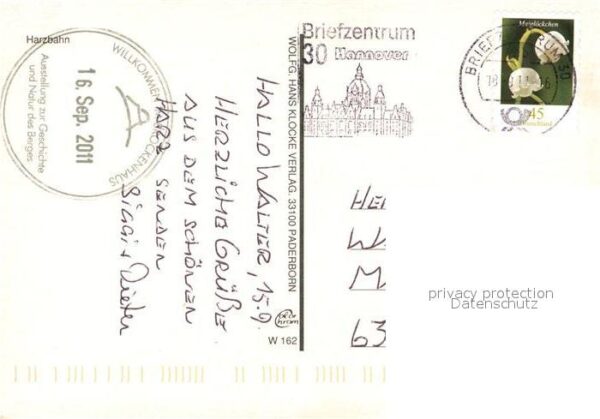 Harzbahn
WILLKOMMEN
BROCKENHAUS
16. Sep. 2011
Ausstellung zur Geschichte
und Natur des Berges
HALLO WALTER, 15.9.
HERZLICHE GRÜßE
AUS DEM SCHÖNEN
HARZ SENDEN
SIGGI + Dieter
WOLFG. HANS KLOCKE VERLAG, 33100 PADERBORN
W 162
Briefzentrum
30 Hannover
BRIEFZENTRUM 30
Maiglöckchen
45
Deutschland
HE
W
M
63
privacy protection
Datenschutz